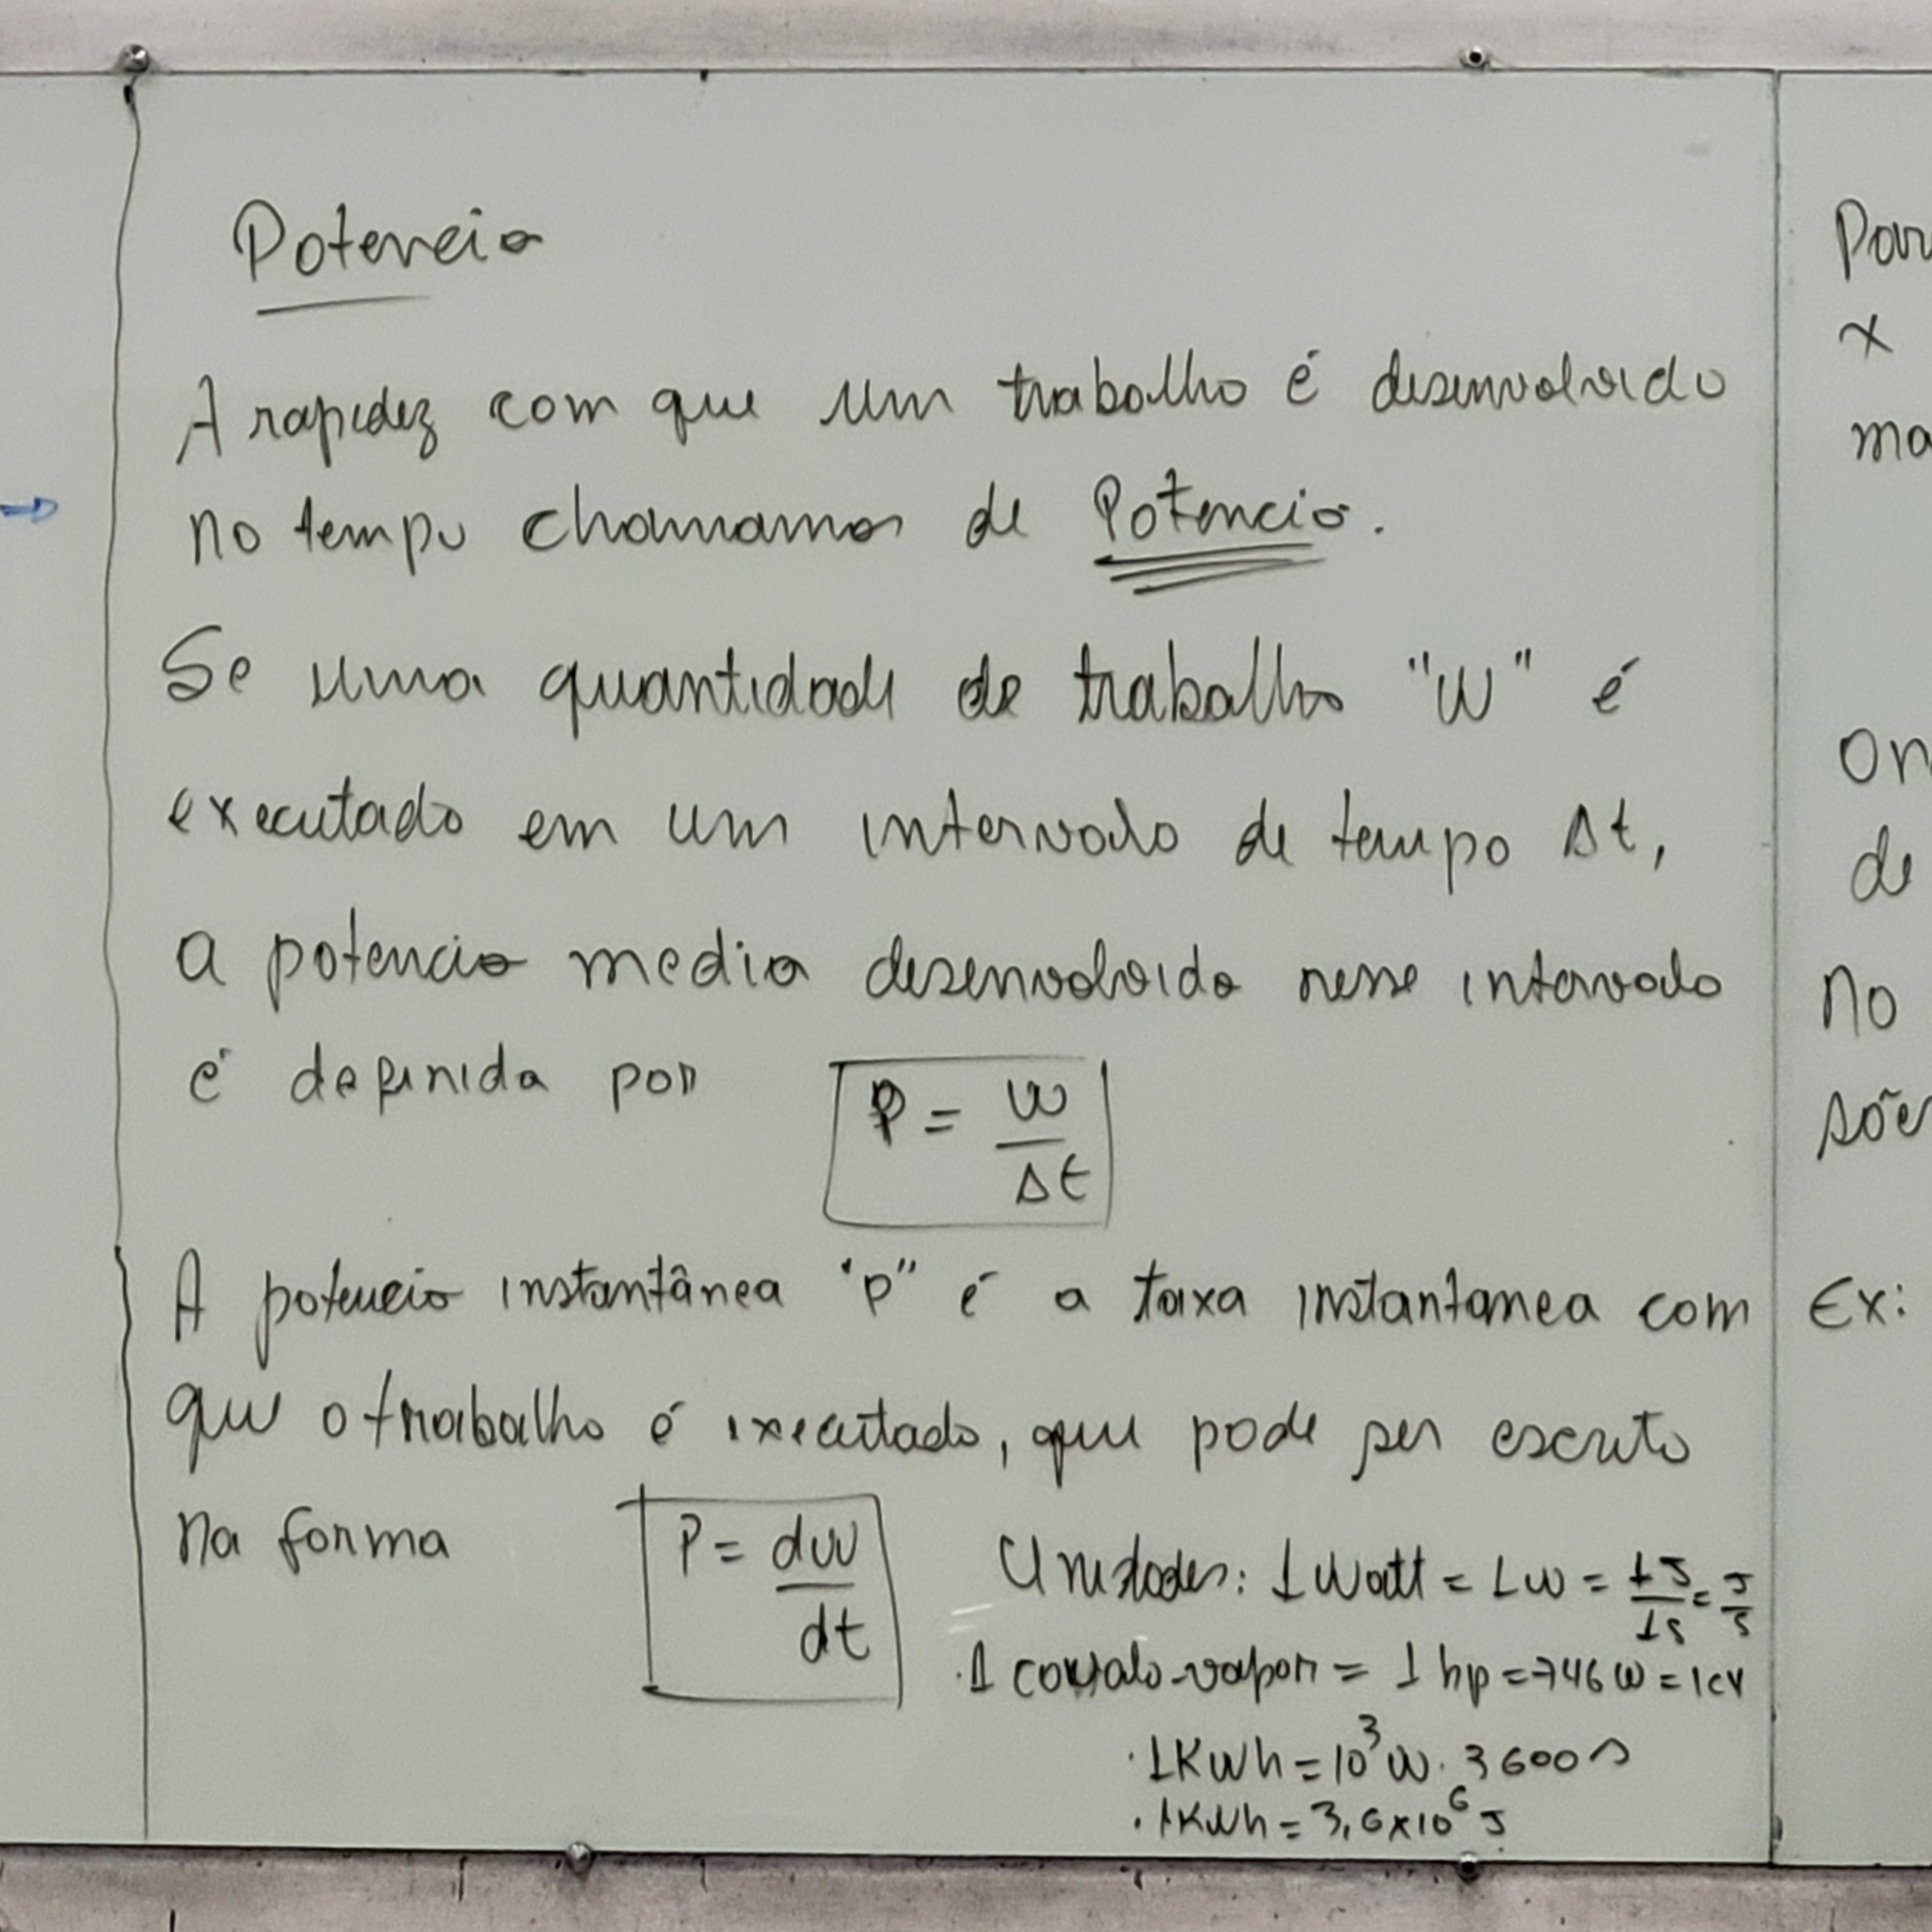 Potencia
A rapidez com que um trabalho é desenvolvido
no tempo chamamos de Potencia.
Se uma quantidade de trabalho "W" é
executado em um intervalo de tempo Δt,
a potencia media desenvolvida nesse intervalo
é definida por P = W/Δt
A potencia instantânea "P" é a taxa instantanea com
que o trabalho é executado, que pode ser escrito
na forma P = dW/dt
Unidades: 1 Watt = 1W = 1J/1s = J/s
·1 cavalo-vapor = 1 hp = 746 W = 1cv
·1KWh = 10³W. 3600 s
·1KWh = 3,6x10⁶ J
x
de
no
sões
Ex: